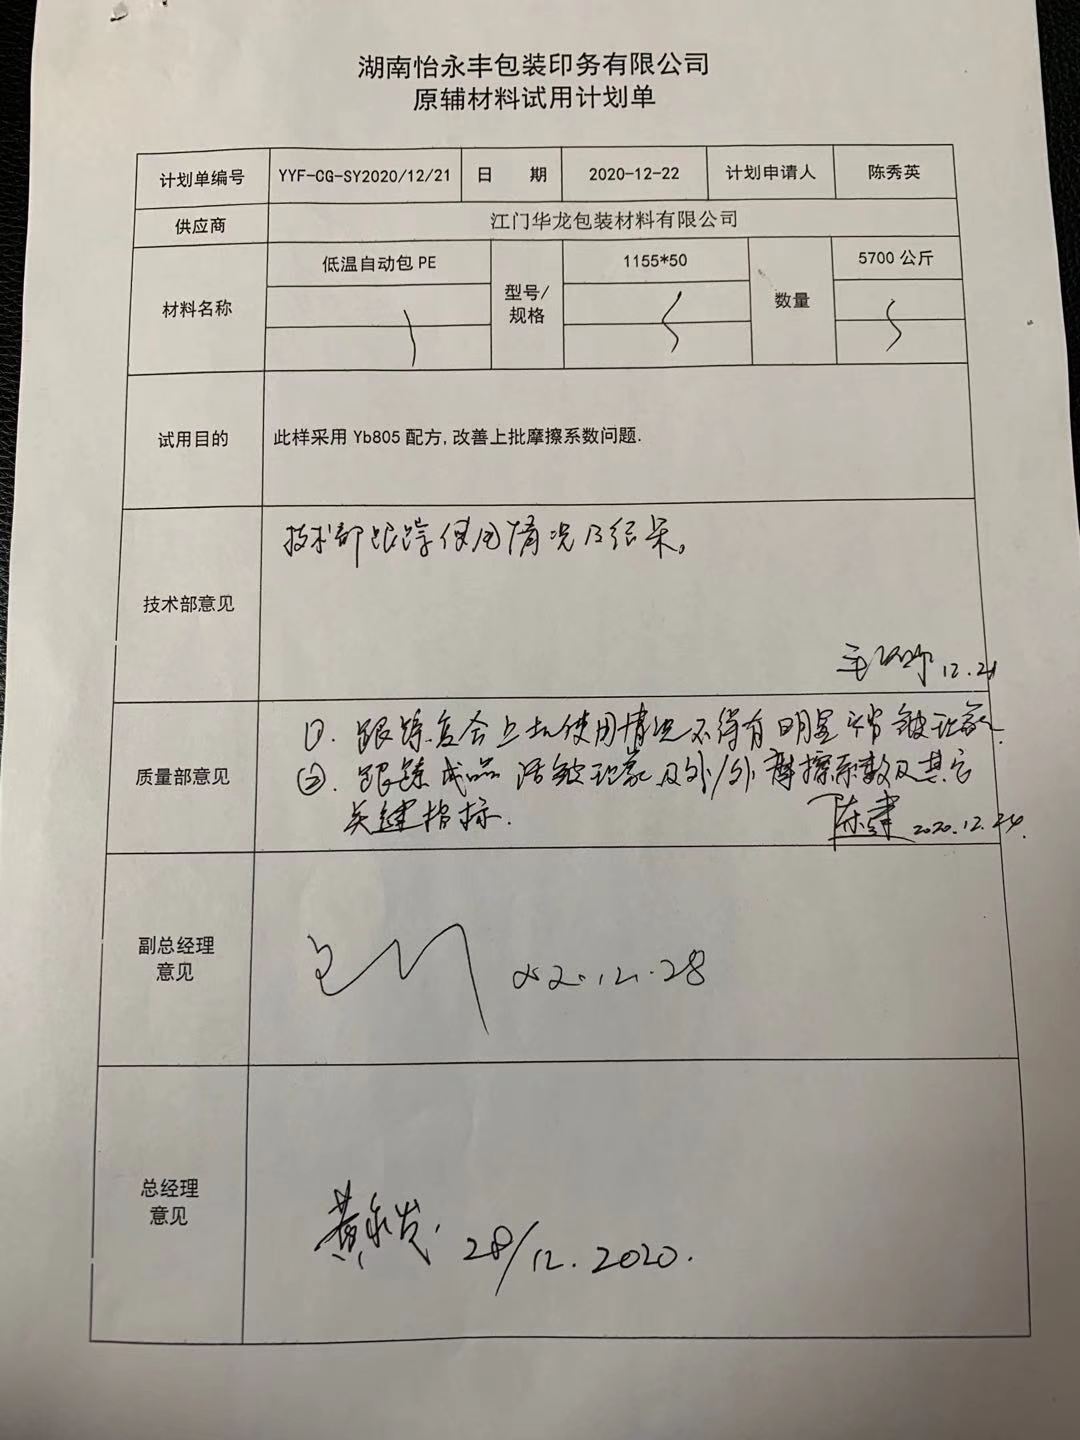 湖南怡永丰包装印务有限公司
原辅材料试用计划单
计划单编号 YYF-CG-SY2020/12/21 日 期 2020-12-22 计划申请人 陈秀英
供应商 江门华龙包装材料有限公司
材料名称 低温自动包 PE 型号/规格 1155*50 数量 5700 公斤
试用目的 此样采用 Yb805 配方,改善上批摩擦系数问题.
技术部意见
技术部跟踪使用情况及结果。
12.21
质量部意见
①. 跟踪复合上机使用情况不得有明显 皱现象.
②. 跟踪成品 皱现象及外/外摩擦系数及其它
关键指标.
陈建 2020.12.24.
副总经理
意见
12.28
总经理
意见
黄永发. 28/12.2020.